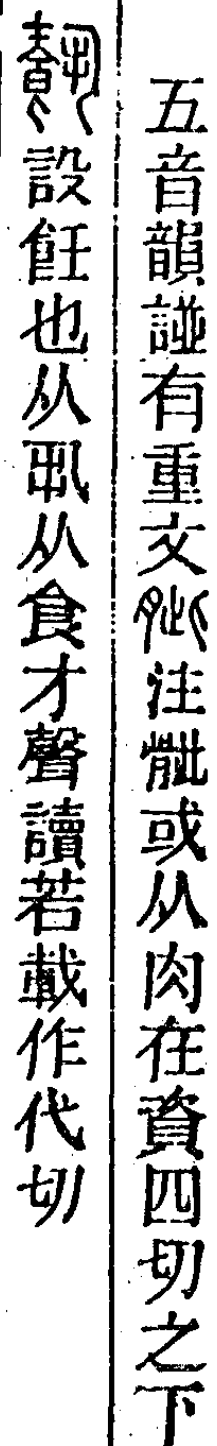 五音韻譜有重文𦙼注㧘或从肉在資四切之下
𩛥設飪也从丮从食才聲讀若載作代切